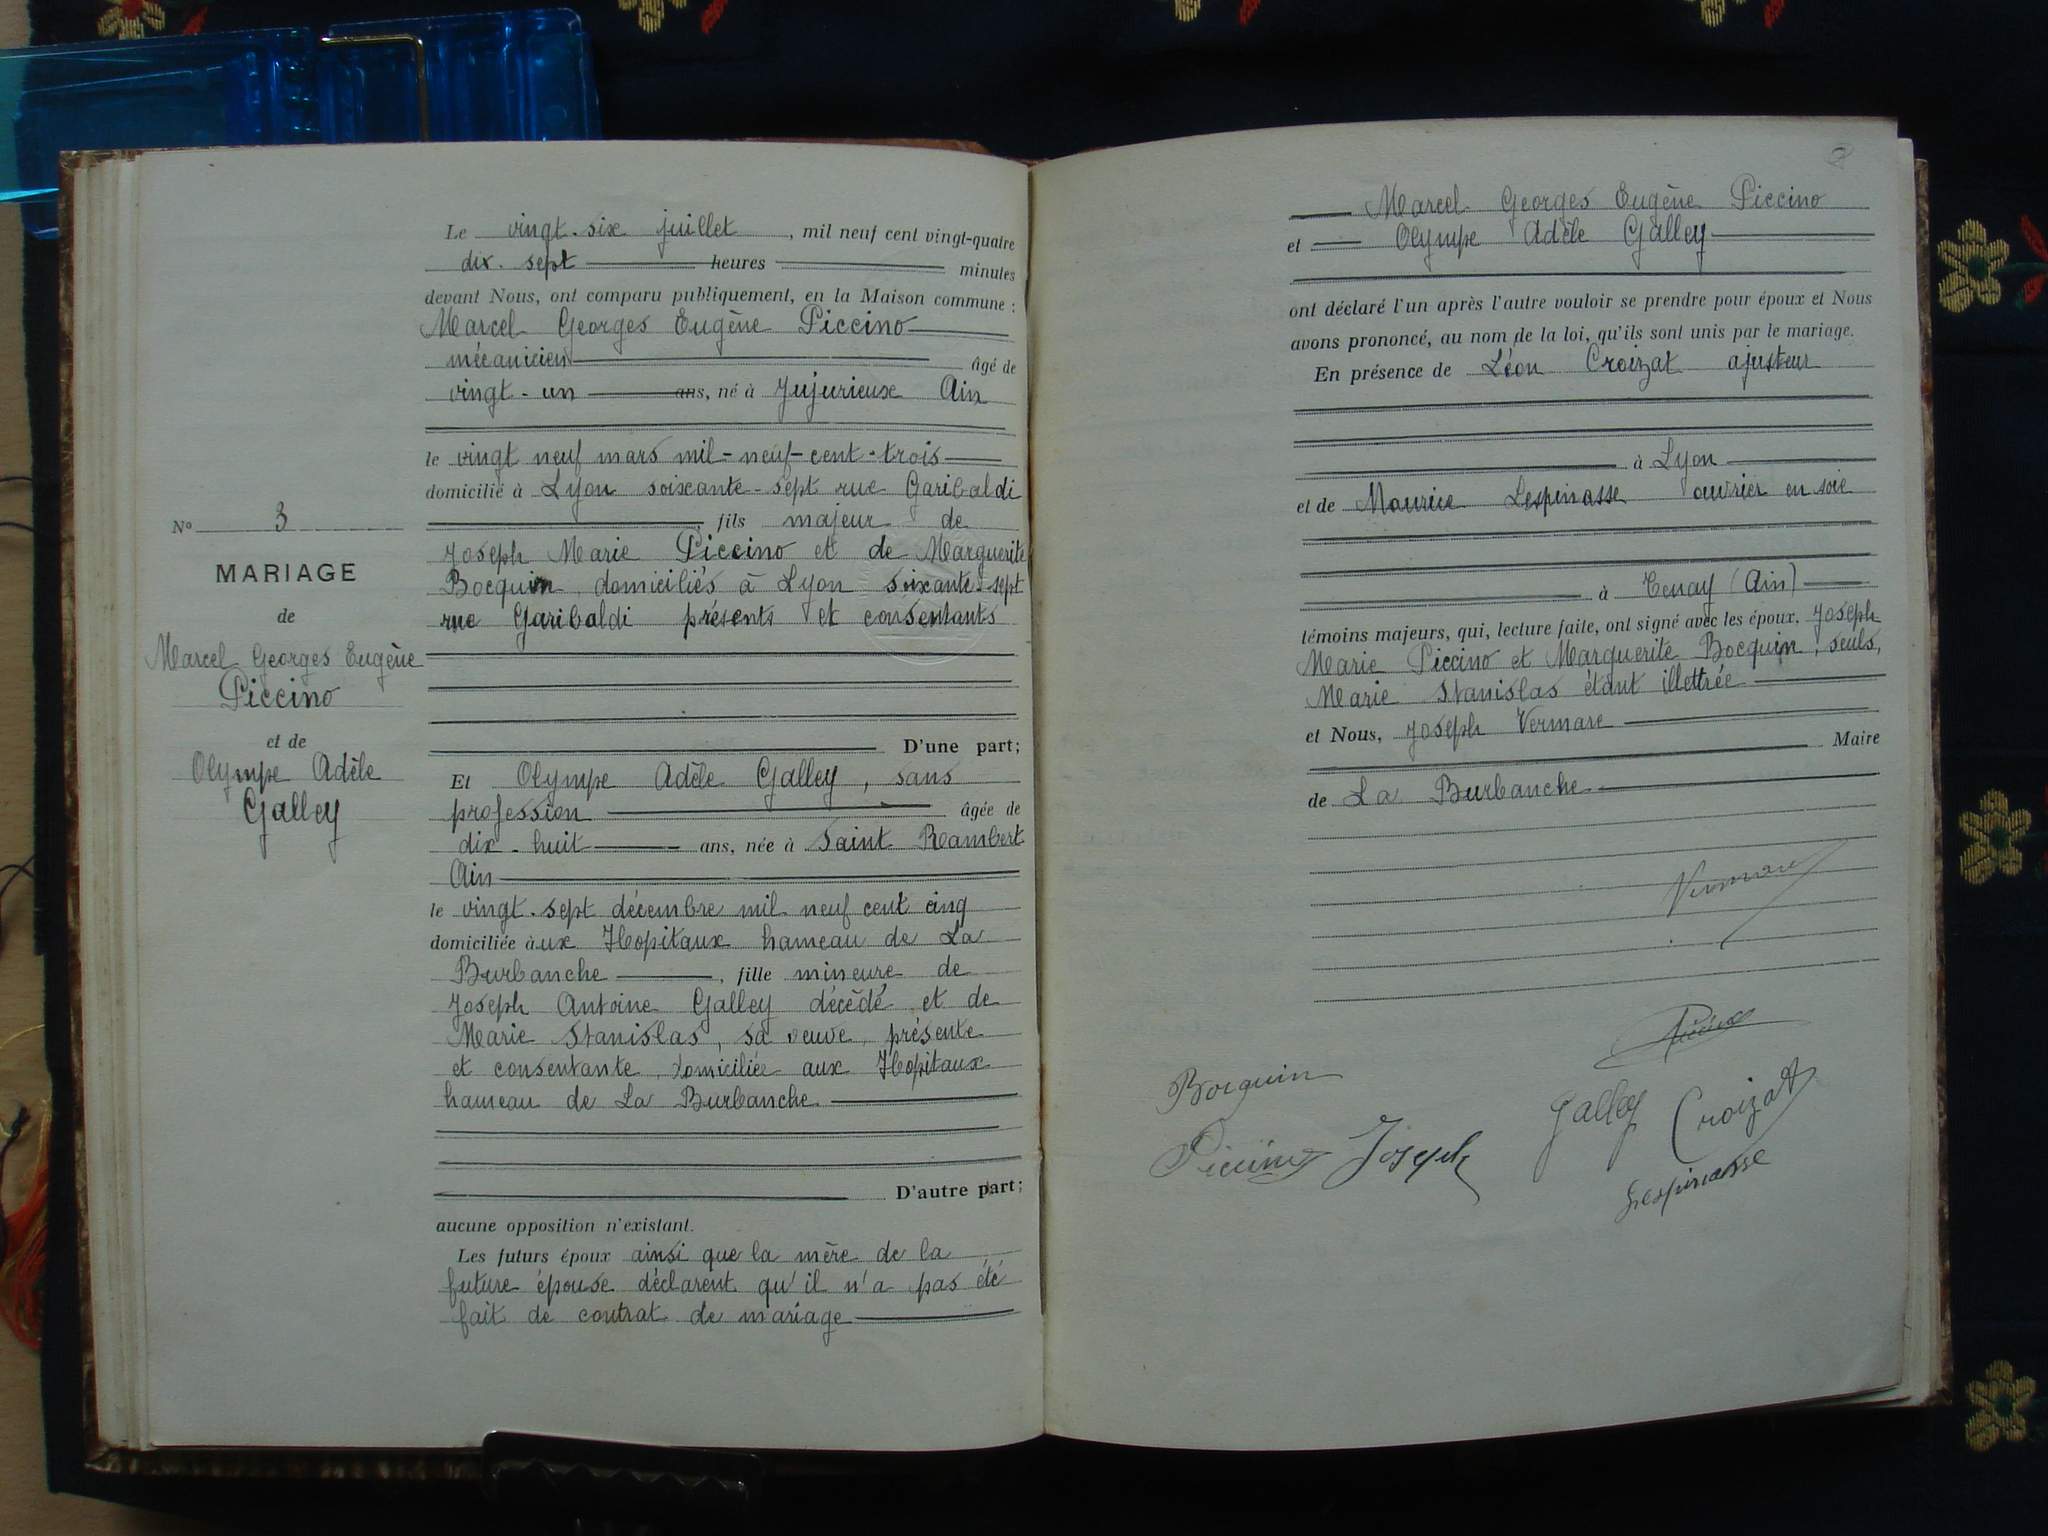 Le vingt-six juillet, mil neuf cent vingt-quatre
dix-sept heures minutes
devant Nous, ont comparu publiquement, en la Maison commune :
Marcel Georges Eugène Piccino
mécanicien âgé de
vingt-un ans, né à Jujurieux Ain
le vingt neuf mars mil-neuf-cent-trois
domicilié à Lyon soixante-sept rue Garibaldi
fils majeur de
Joseph Marie Piccino et de Marguerite
Bocquin domiciliés à Lyon soixante-sept
rue Garibaldi présents et consentants
D'une part;
Et Olympe Adèle Galley, sans
profession âgée de
dix-huit ans, née à Saint Rambert
Ain
le vingt-sept décembre mil neuf cent cinq
domiciliée aux Hopitaux hameau de La
Burbanche, fille mineure de
Joseph Antoine Galley décédé et de
Marie Stanislas, sa veuve, présente
et consentante, domiciliée aux Hopitaux
hameau de La Burbanche
D'autre part;
aucune opposition n'existant.
Les futurs époux ainsi que la mère de la
future épouse déclarent qu'il n'a pas été
fait de contrat de mariage
No 3
MARIAGE
de
Marcel Georges Eugène
Piccino
et de
Olympe Adèle
Galley
8
Marcel Georges Eugène Piccino
et Olympe Adèle Galley
ont déclaré l'un après l'autre vouloir se prendre pour époux et Nous
avons prononcé, au nom de la loi, qu'ils sont unis par le mariage.
En présence de Léon Croizat ajusteur
à Lyon
et de Maurice Lespinasse ouvrier en soie
à Tenay (Ain)
témoins majeurs, qui, lecture faite, ont signé avec les époux, Joseph
Marie Piccino et Marguerite Bocquin, seuls,
Marie Stanislas étant illettrée
et Nous, Joseph Vermare
Maire
de La Burbanche
Vermare
Bocquin
Galley Croizat
Piccino Joseph
Lespinasse